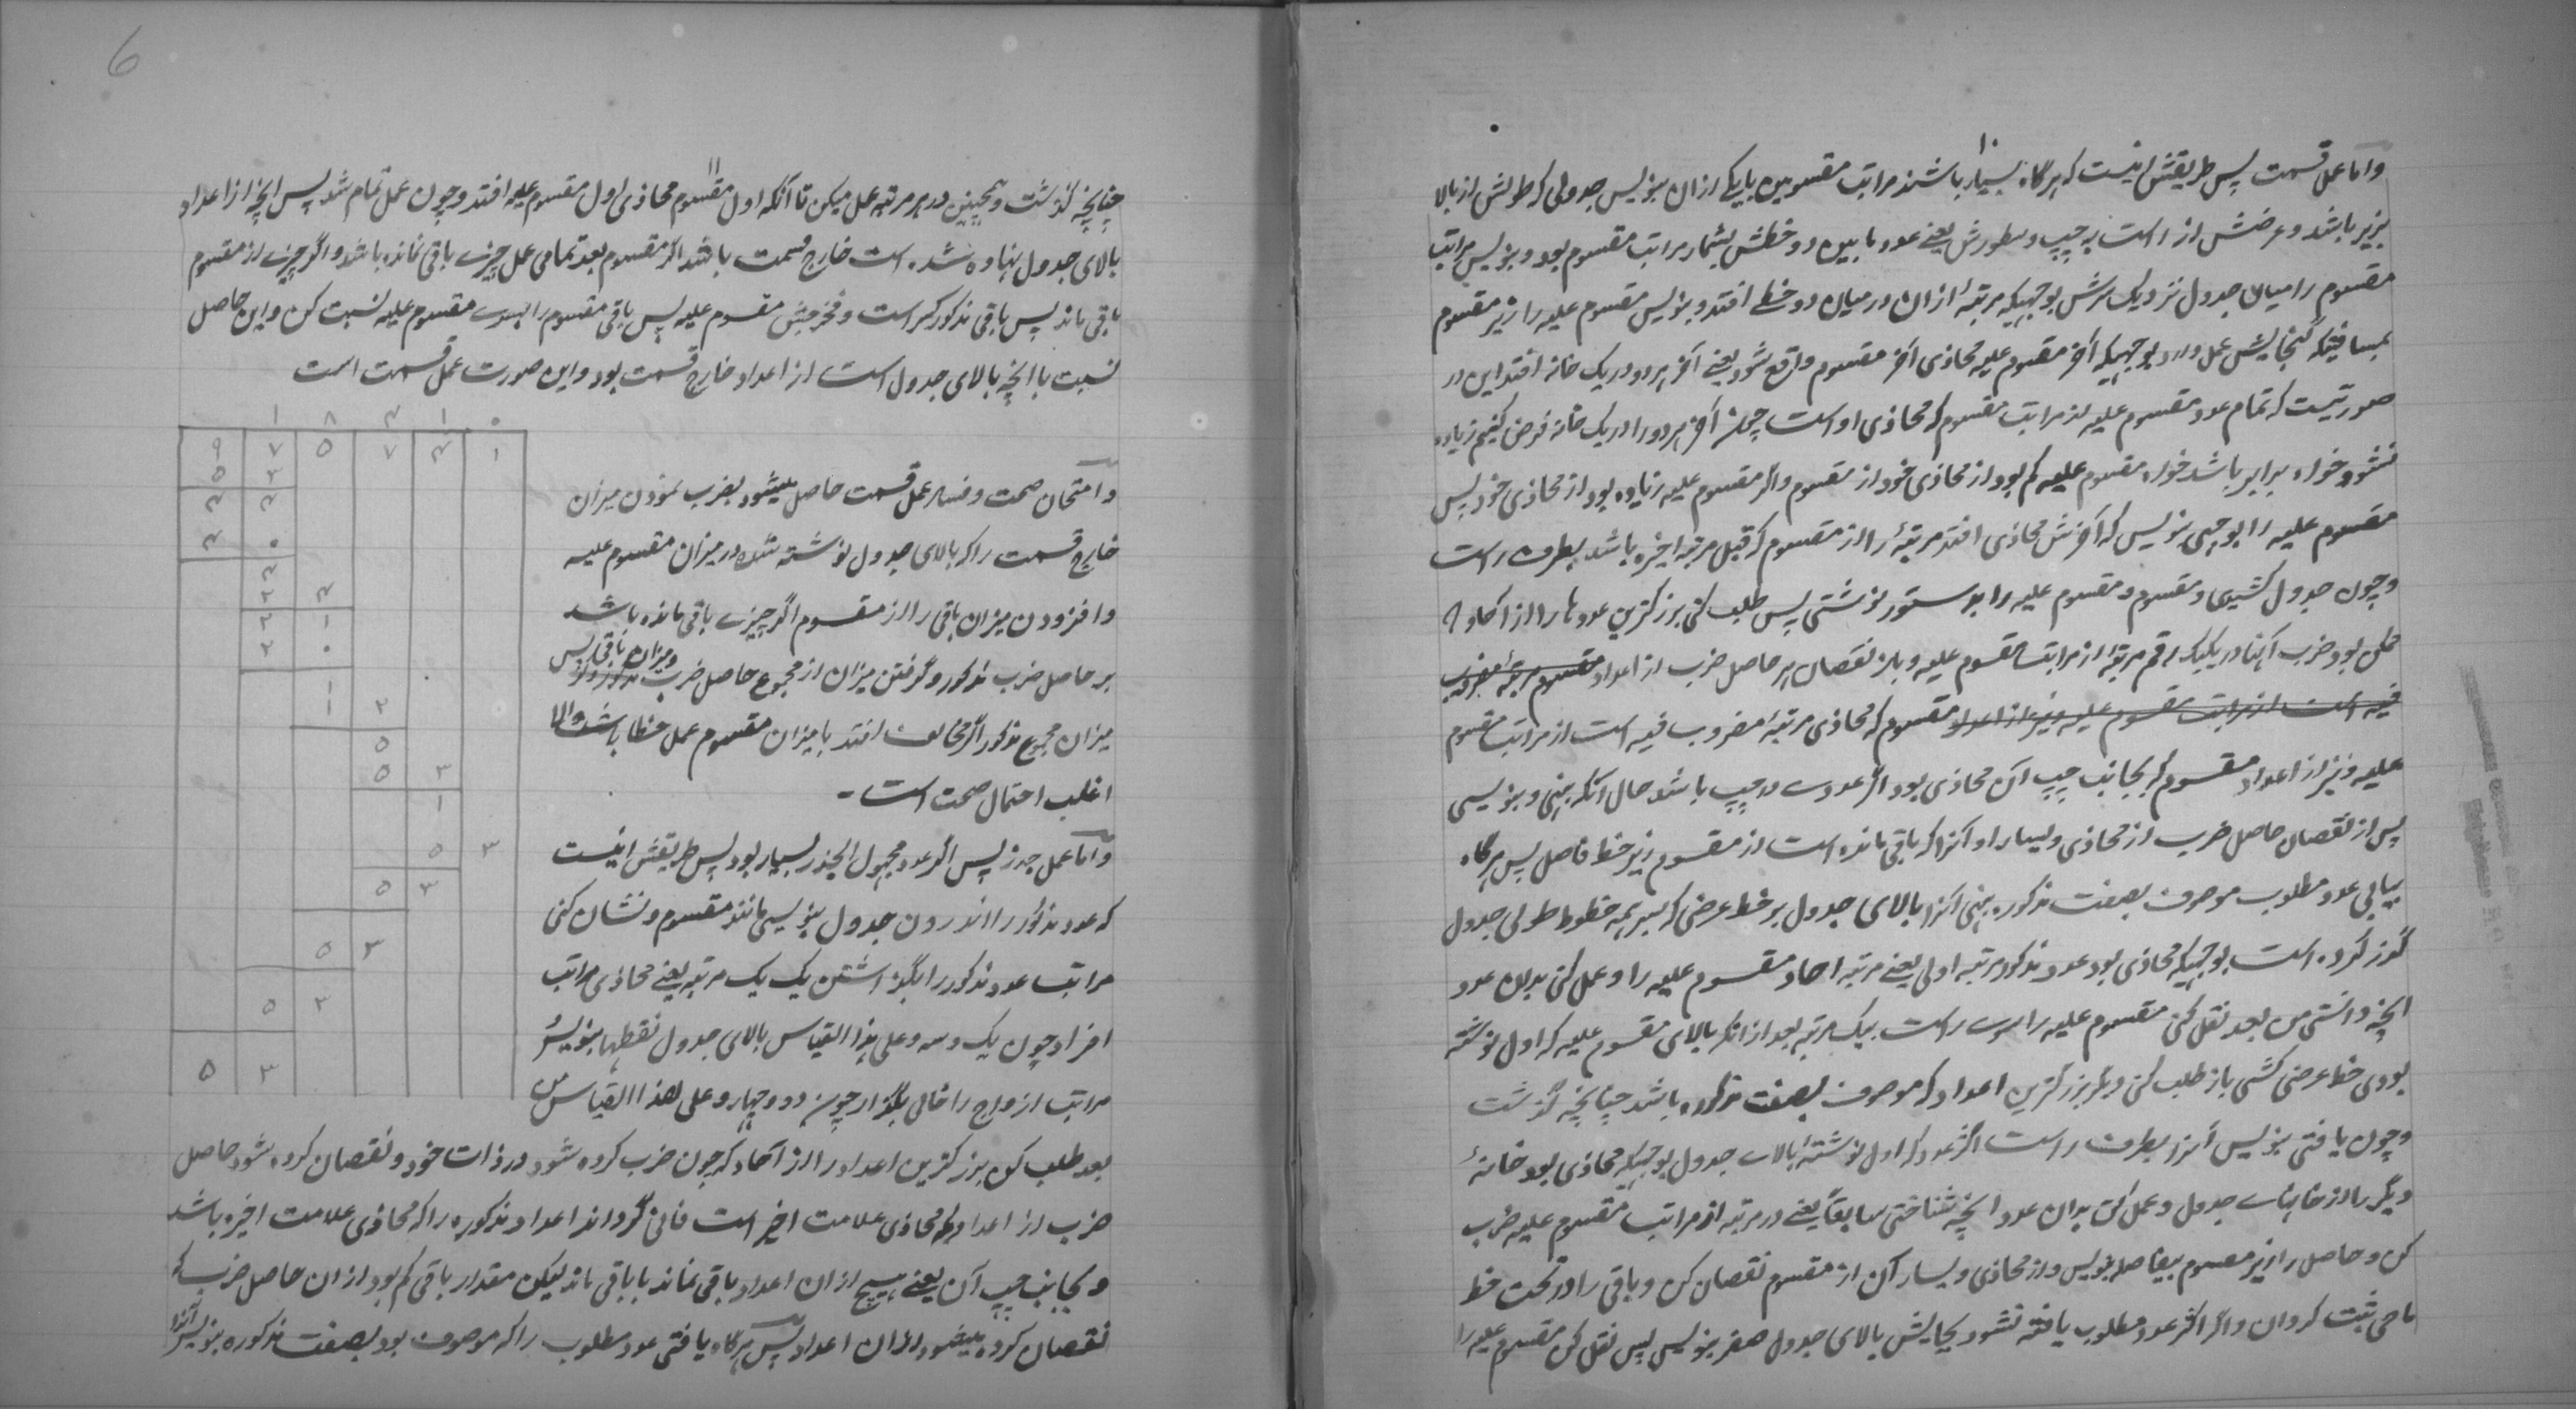 ۱۰
واما عمل قسمت پس طریقش اینست که هرگاه بسیار باشند مراتب مقسومین یا یکے ازان بنویس جدولی که طولش از بالا
بزیر باشد و عرضش از راست به چپ و سطورش یعنے عدد مابین دو خطش بشمار مراتب مقسوم بود و بنویس مراتب
مقسوم را میان جدول نزدیک سرش بوجهیکه مرتبهٔ ازان درمیان دو خط افتد و بنویس مقسوم علیه را زیر مقسوم
بمسافتیکه گنجایش عمل دارد بوجهیکه آخر مقسوم علیه محاذی آخر مقسوم واقع شود یعنے آخر هر دو در یک خانه افتد این در
صورتیست که تمام عدد مقسوم علیه از مراتب مقسوم که محاذی او است چون آخر هر دو را در یک خانه فرض کنیم زیاده
نشود خواه برابر باشد خواه مقسوم علیه کم بود از محاذی خود از مقسوم واگر مقسوم علیه زیاده بود از محاذی خود پس
مقسوم علیه را بوجهی بنویس که آخرش محاذی افتد مرتبهٔ را از مقسوم که قبل مرتبه اخیره باشد بطرف راست
و چون جدول کشیدی و مقسوم و مقسوم علیه را بدستور نوشتی پس طلب کنی بزرگترین عددها را از آحاد که
ممکن بود ضرب آنها در یکیک رقم مرتبه از مراتب مقسوم علیه و باز نقصان هر حاصل ضرب از اعداد مقسوم مرتبهٔ مضروب
فیه است از مراتب مقسوم علیه ونیز از اعداد مقسوم که محاذی مرتبهٔ مضروب فیه است از مراتب مقسوم
علیه ونیز از اعداد مقسوم که بجانب چپ آن محاذی بود اگر عددے در چپ باشد حال آنکه بنهی و بنویسی
پس از نقصان حاصل ضرب از محاذی و یسار او آنرا که باقی مانده است از مقسوم زیر خط فاصل پس هرگاه
بیابی عدد مطلوب موصوف بصفت مذکوره بنهی آنرا بالای جدول بر خط عرضی که بسر همه خطوط طولی جدول
گذر کرده است بوجهیکه محاذی بود عدد مذکور مرتبه اولی یعنے مرتبه احاد مقسوم علیه را و عمل کنی بدان عدد
آنچه دانستی من بعد نقل کنی مقسوم علیه را بسوے راست بیک مرتبه بعد ازانکه بالای مقسوم علیه که اول نوشته
بودی خط عرضی کشی باز طلب کنی دیگر بزرگترین اعداد که موصوف بصفت مذکوره باشد چنانچه گذشت
و چون یافتی بنویس آنرا بطرف راست اگر عدد که اول نوشتهٔ بالاے جدول بوجهیکه محاذی بود خانهٔ
دیگر را از خانهاے جدول و عمل کن بدان عدد آنچه شناختی سابقاً یعنے در مرتبه از مراتب مقسوم علیه ضرب
کن و حاصل را زیر مقسوم بیفاصله بنویس و از محاذی و یسار آن از مقسوم نقصان کن و باقی را در تحت خط
ماحی ثبت گردان واگر اکثر عدد مطلوب یافته نشود بجایش بالای جدول صفر بنویس پس نقل کن مقسوم علیه را
6
۱۱
چنانچه گذشت و همچنین در هر مرتبه عمل میکن تا آنکه اول مقسوم محاذی اول مقسوم علیه افتد و چون عمل تمام شد پس آنچه از اعداد
بالای جدول نهاده شده است خارج قسمت باشد اگر مقسوم بعد تمامی عمل چیزے باقی نمانده باشد واگر چیزے از مقسوم
باقی ماند پس باقی مذکور کسر است و مخرجش مقسوم علیه پس باقی مقسوم را بسوے مقسوم علیه نسبت کن و این حاصل
نسبت با آنچه بالای جدول است از اعداد خارج قسمت بود و این صورت عمل قسمت است
۱ ۸ ۴ ۱ ۰
۹ ۷ ۵ ۷ ۴ ۱
۵ ۳
۴ ۴
۴ ۰
۴
۳ ۴
۳ ۱
۲ ۰
۱
۱ ۲
۵
۵ ۳
۱
۵ ۳
۵ ۳
۵ ۳
۵ ۳
۵ ۳
وامتحان صحت و فساد عمل قسمت حاصل میشود بضرب نمودن میزان
خارج قسمت را که بالای جدول نوشته شده در میزان مقسوم علیه
وافزودن میزان باقی را از مقسوم اگر چیزے باقی مانده باشد
بر حاصل ضرب مذکور و گرفتن میزان از مجموع حاصل ضرب مذکور و میزان باقی پس
میزان مجموع مذکور اگر مخالف افتد با میزان مقسوم عمل خطا باشد والا
اغلب احتمال صحت است ۔
واما عمل جذر پس اگر عدد مجهول الجذر بسیار بود پس طریقش اینست
که عدد مذکور را اندرون جدول بنویسی مانند مقسوم و نشان کنی
مراتب عدد مذکور را بگذاشتن یک یک مرتبه یعنے محاذی مراتب
افراد چون یک و سه و علی هذا القیاس بالای جدول نقطها بنویس و
مراتب ازواج را خالی بگذار چون دو و چهار و علی هذا القیاس من
بعد طلب کن بزرگترین اعداد را از آحاد که چون ضرب کرده شود در ذات خود و نقصان کرده شود حاصل
ضرب از اعداد که محاذی علامت اخیر است فانی گرداند اعداد مذکوره را که محاذی علامت اخیره باشد
و بجانب چپ آن یعنے هیچ ازان اعداد باقی نماند یا باقی ماند لیکن مقدار باقی کم بود ازان حاصل ضرب که
نقصان کرده میشود ازان اعداد پس هرگاه یافتی عدد مطلوب را که موصوف بود بصفت مذکوره بنویس آنرا